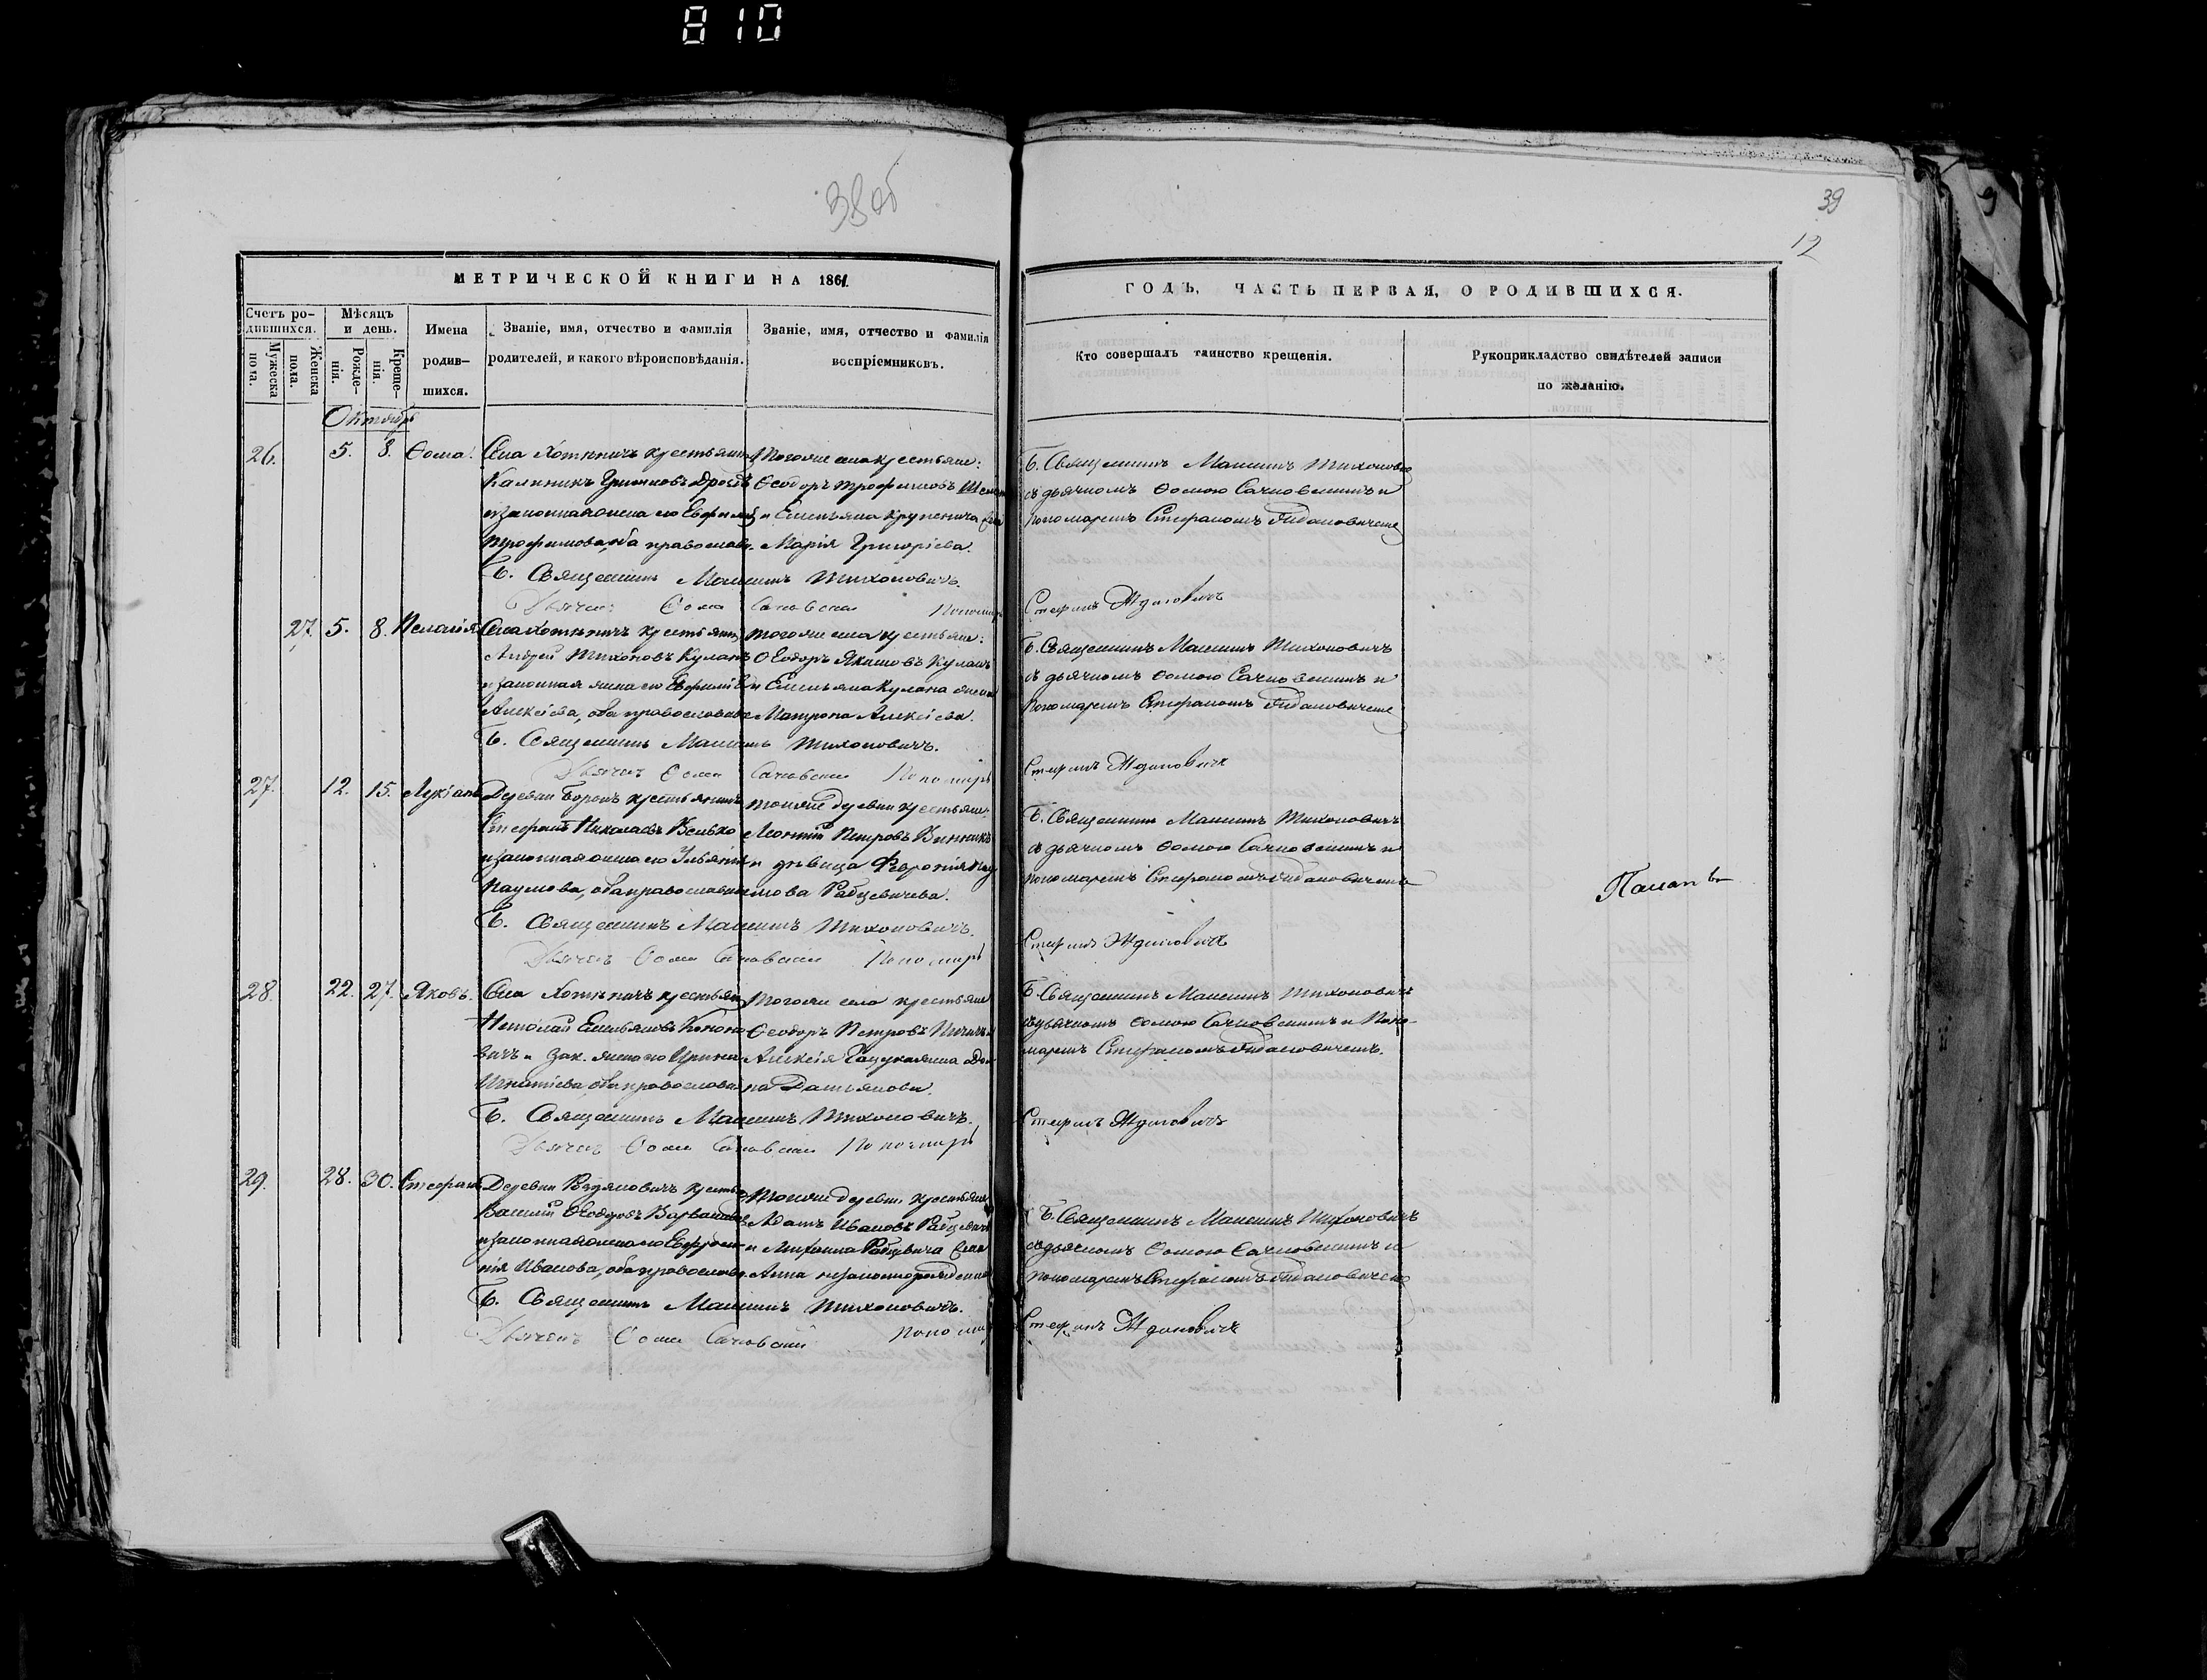 810
38 об
39
12
МЕТРИЧЕСКОЙ КНИГИ НА 1861
ГОДЪ, ЧАСТЬ ПЕРВАЯ, О РОДИВШИХСЯ.
Счетъ родившихся.
Мужеска пола.
Женска пола.
Мѣсяцъ и день.
Рожденія.
Крещенія.
Имена родившихся.
Званіе, имя, отчество и фамилія
родителей, и какого вѣроисповѣданія.
Званіе, имя, отчество и фамилія
воспріемниковъ.
Кто совершалъ таинство крещенія.
Рукоприкладство свидѣтелей записи
по желанію.
Октябрь
26. 5. 8. Ѳома.
Села Хотыничъ крестьянинъ
Калиникъ
и законная жена его
Трофимова, оба православ.
Тогоже села крестьяне:
Ѳеодоръ Трофимовъ
и Емельяна
Марія Григоріева.
Б. Священникъ Максимъ Тихоновичъ
съ дьячкомъ Ѳомою Сачковскимъ и
пономаремъ Стефаномъ Ждановичемъ
Б. Священникъ Максимъ Тихоновичъ.
Дьячекъ Ѳома Сачковскій Пономарь
Стефанъ Ждановичъ
27. 5. 8. Пелагія
Села Хотыничъ крестьянинъ
Андрей Тихоновъ Куланъ
и законная жена его
Алексіева, оба православные
тогоже села крестьяне:
Ѳеодоръ Якимовъ Куланъ
и Емельяна Кулана жена
Матрона Алексіева.
Б. Священникъ Максимъ Тихоновичъ
съ дьячкомъ Ѳомою Сачковскимъ и
пономаремъ Стефаномъ Ждановичемъ
Б. Священникъ Максимъ Тихоновичъ.
Дьячекъ Ѳома Сачковскій Пономарь
Стефанъ Ждановичъ
27. 12. 15. Лукіанъ
Деревни Борокъ крестьянинъ
Стефанъ Николаевъ Велько
и законная жена его
Наумова, оба православные
тойже деревни крестьяне:
Леонтій Петровъ Винникъ
и дѣвица Февронія
Рабцевичева.
Б. Священникъ Максимъ Тихоновичъ
съ дьячкомъ Ѳомою Сачковскимъ и
пономаремъ Стефаномъ Ждановичемъ
Б. Священникъ Максимъ Тихоновичъ.
Дьячекъ Ѳома Сачковскій Пономарь
Стефанъ Ждановичъ
28. 22. 27. Яковъ.
Села Хотыничъ крестьян.
Николай Емельяновъ Конено-
вичъ и зак. жена его Ирина
Игнатіева, оба православ.
Тогоже села крестьяне
Ѳеодоръ Петровъ
Алексія
на Дамьянова.
Б. Священникъ Максимъ Тихоновичъ
съ дьячкомъ Ѳомою Сачковскимъ и Поно-
маремъ Стефаномъ Ждановичемъ.
Б. Священникъ Максимъ Тихоновичъ.
Дьячекъ Ѳома Сачковскій Пономарь
Стефанъ Ждановичъ
29. 28. 30. Стефанъ
Деревни
Василій Ѳеодоровъ
и законная жена его Евфроси-
нія Иванова, оба православ.
Тойже деревни крестьяне
Адамъ Ивановъ Рабцевичъ
и Михаила Рабцевича
Анна незаконнорожденная
Б. Священникъ Максимъ Тихоновичъ
съ дьячкомъ Ѳомою Сачковскимъ и
пономаремъ Стефаномъ Ждановичемъ
Б. Священникъ Максимъ Тихоновичъ.
Дьячекъ Ѳома Сачковскій Пономарь
Стефанъ Ждановичъ